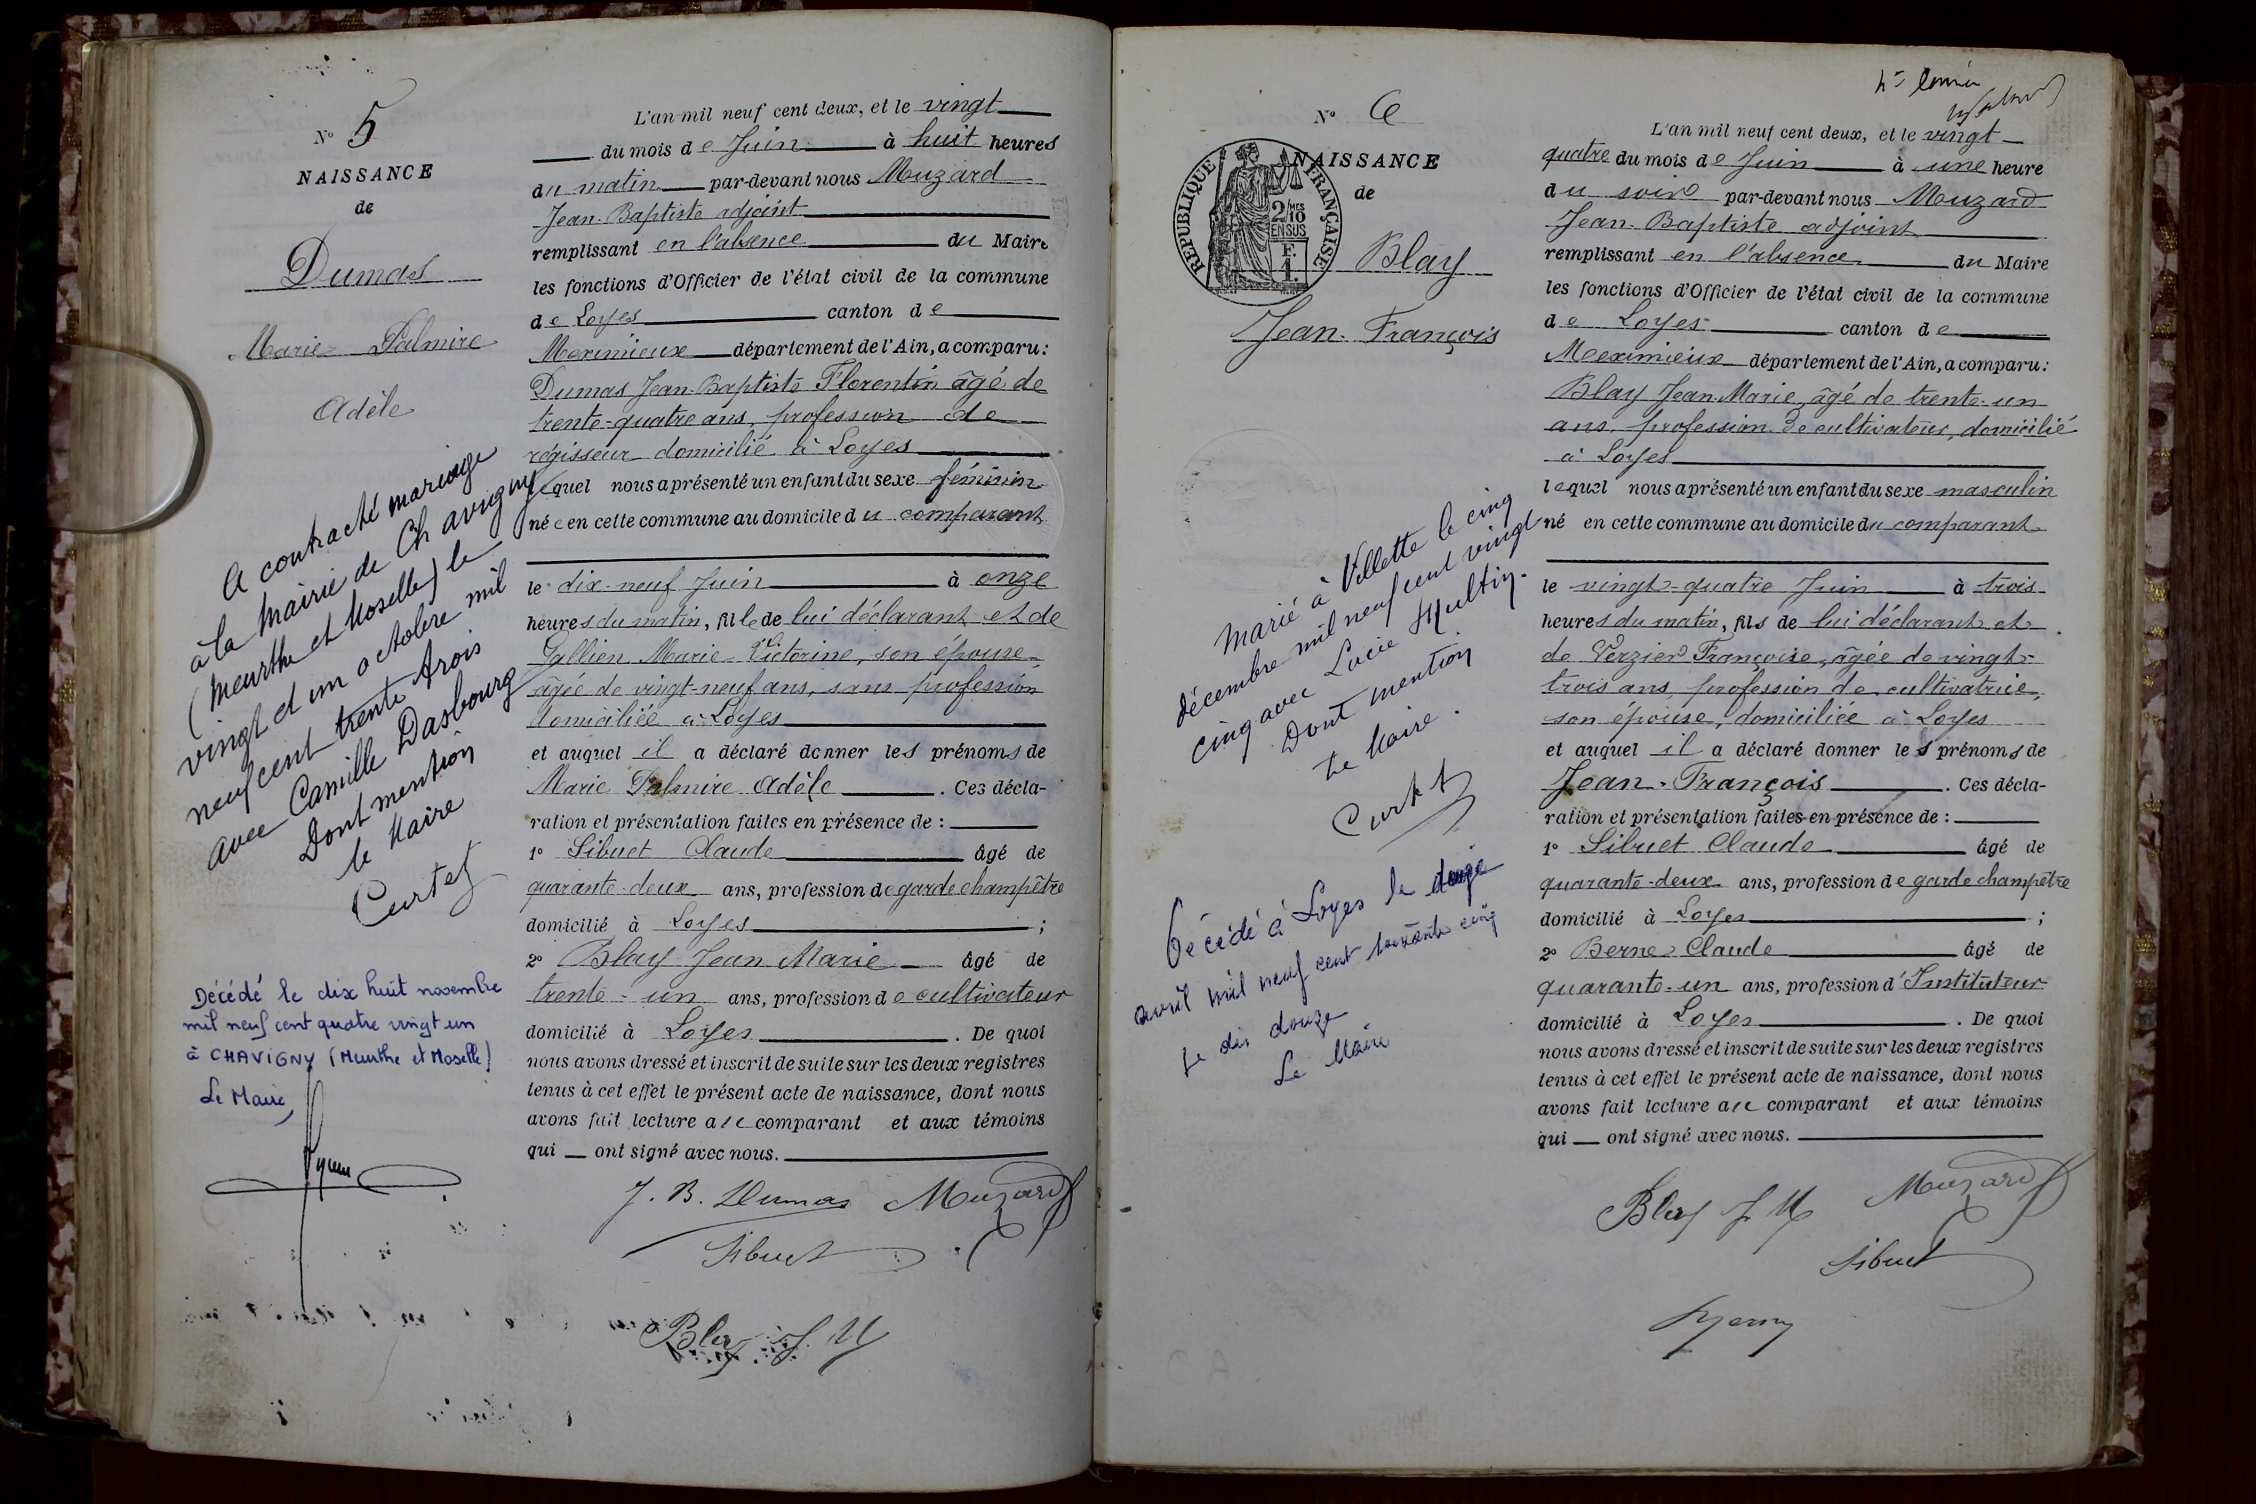 N° 5
NAISSANCE
de
Dumas
Marie Palmire
Adèle
A contracté mariage
à la Mairie de Chavigny
(Meurthe et Moselle) le
vingt et un octobre mil
neuf cent trente trois
avec Camille Dasbourg
Dont mention
le Maire
Curtet
Décédé le dix huit novembre
mil neuf cent quatre vingt un
à CHAVIGNY (Meurthe et Moselle)
Le Maire,
L'an mil neuf cent deux, et le vingt
du mois de Juin à huit heures
du matin par-devant nous Muzard
Jean-Baptiste adjoint
remplissant en l'absence du Maire
les fonctions d'Officier de l'état civil de la commune
de Loyes canton de
Meximieux département de l'Ain, a comparu :
Dumas Jean-Baptiste Florentin âgé de
trente-quatre ans, profession de
régisseur domicilié à Loyes
lequel nous a présenté un enfant du sexe féminin
née en cette commune au domicile du comparant
le dix-neuf Juin à onze
heures du matin, fille de lui déclarant et de
Gallien Marie-Victorine, son épouse,
âgée de vingt-neuf ans, sans profession
domiciliée à Loyes
et auquel il a déclaré donner les prénoms de
Marie Palmire Adèle. Ces décla-
ration et présentation faites en présence de :
1° Sibuet Claude âgé de
quarante-deux ans, profession de garde champêtre
domicilié à Loyes ;
2° Blay Jean Marie âgé de
trente-un ans, profession de cultivateur
domicilié à Loyes. De quoi
nous avons dressé et inscrit de suite sur les deux registres
tenus à cet effet le présent acte de naissance, dont nous
avons fait lecture au comparant et aux témoins
qui — ont signé avec nous.
J. B. Dumas Muzard
Sibuet
Blay J. M
N° 6
NAISSANCE
de
REPUBLIQUE FRANÇAISE
2/10 MES
EN SUS
F.
1.
Blay
Jean-François
Marié à Villette le cinq
décembre mil neuf cent vingt
cinq avec Lucie
Dont mention
Le Maire.
Curtet
Décédé à Loyes le douze
avril mil neuf cent soixante cinq
Le dix douze
Le Maire
L'an mil neuf cent deux, et le vingt
quatre du mois de Juin à une heure
du soir par-devant nous Muzard
Jean-Baptiste adjoint
remplissant en l'absence du Maire
les fonctions d'Officier de l'état civil de la commune
de Loyes canton de
Meximieux département de l'Ain, a comparu :
Blay Jean-Marie, âgé de trente-un
ans, profession de cultivateur, domicilié
à Loyes
lequel nous a présenté un enfant du sexe masculin
né en cette commune au domicile du comparant
le vingt-quatre Juin à trois
heures du matin, fils de lui déclarant et
de Verzier Françoise, âgée de vingt-
trois ans, profession de cultivatrice,
son épouse, domiciliée à Loyes
et auquel il a déclaré donner les prénoms de
Jean-François. Ces décla-
ration et présentation faites en présence de :
1° Sibuet Claude âgé de
quarante-deux ans, profession de garde champêtre
domicilié à Loyes ;
2° Berne Claude âgé de
quarante-un ans, profession d'Instituteur
domicilié à Loyes. De quoi
nous avons dressé et inscrit de suite sur les deux registres
tenus à cet effet le présent acte de naissance, dont nous
avons fait lecture au comparant et aux témoins
qui — ont signé avec nous.
Blay J M Muzard
Sibuet
Berne